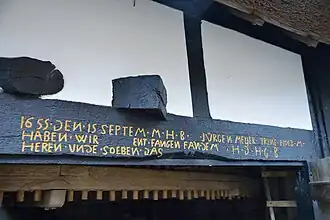 1655·DEN·15 SEPTEM·M·H·B· JÜRGEN MEUER TRINE
HABEN·WIR ENT·FANGEN FANDEM ·H·D·H·G·B
HEREN·UNDE·SOEBEN·DAS